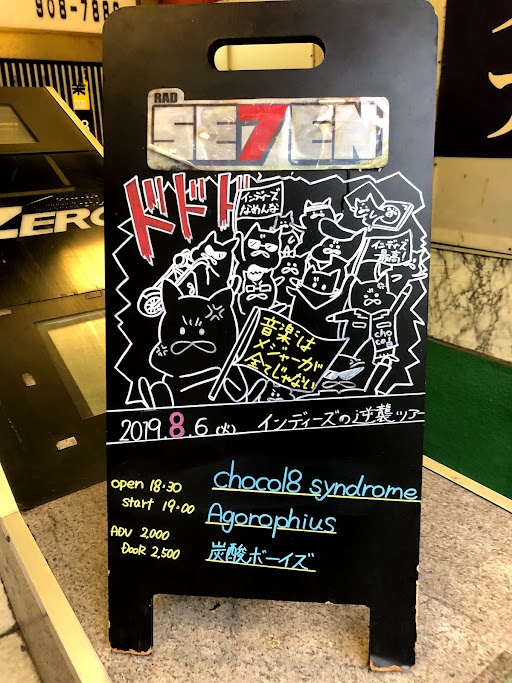 908-788
ZERO
RAD
SE7EN
ドドド
インディーズ
なめんな
インディーズ
最高!
音楽は
メジャーが
全てじゃない
choco18
2019.8.6(火) インディーズの逆襲ツアー
open 18:30
start 19:00
ADV 2,000
DooR 2,500
choco18 syndrome
Agorophius
炭酸ボーイズ